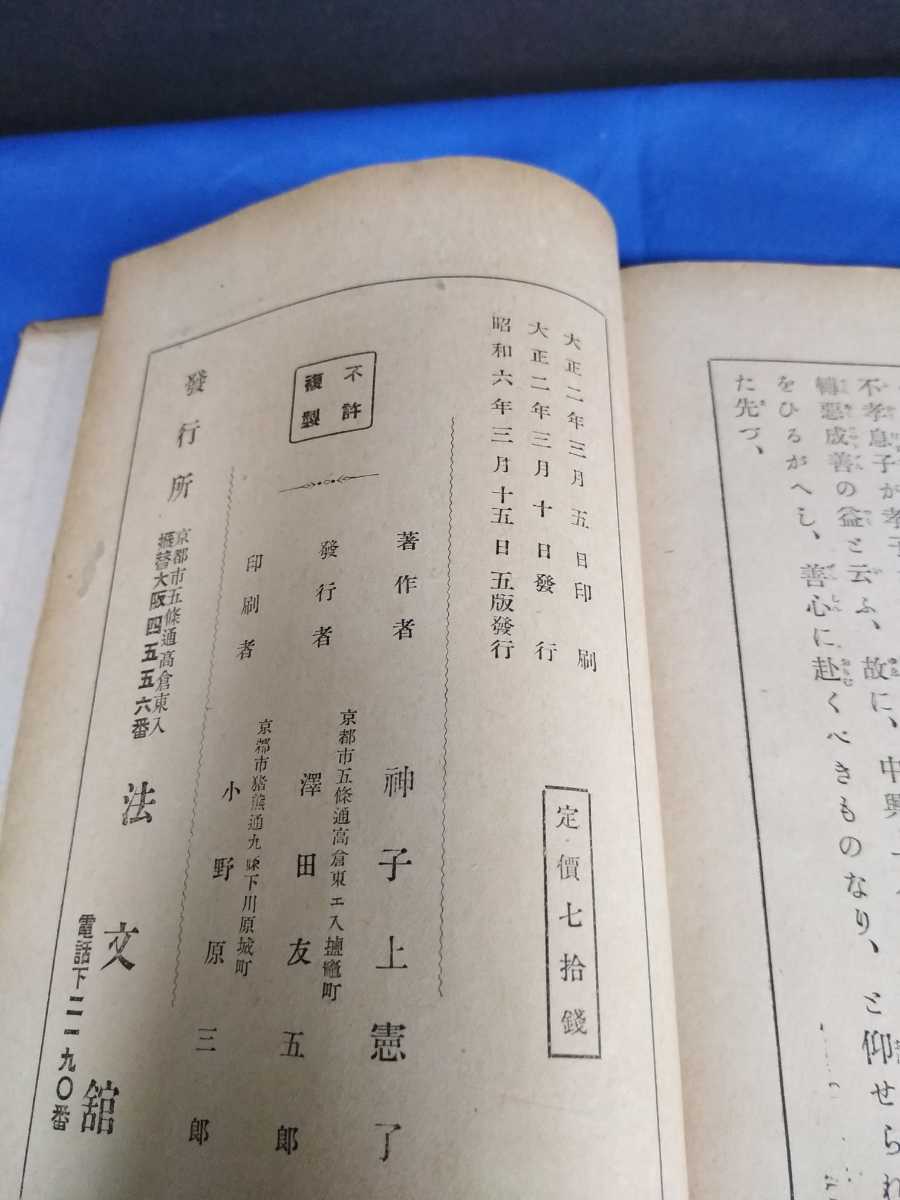 た先づ、
をひるがへし、善心に赴くべきものなり、と仰せられ
轉惡成善の益と云ふ、故に、中興
不孝息子が孝子
大正二年三月五日印刷
大正二年三月十日發行
昭和六年三月十五日五版發行
定價七拾錢
不許
複製
著作者 神子上憲了
京都市五條通高倉東エ入鹽竈町
發行者 澤田友五郎
京都市猪熊通九條下川原城町
印刷者 小野原三郎
發行所
京都市五條通高倉東入
振替大阪四五五六番
法文舘
電話下二一九〇番